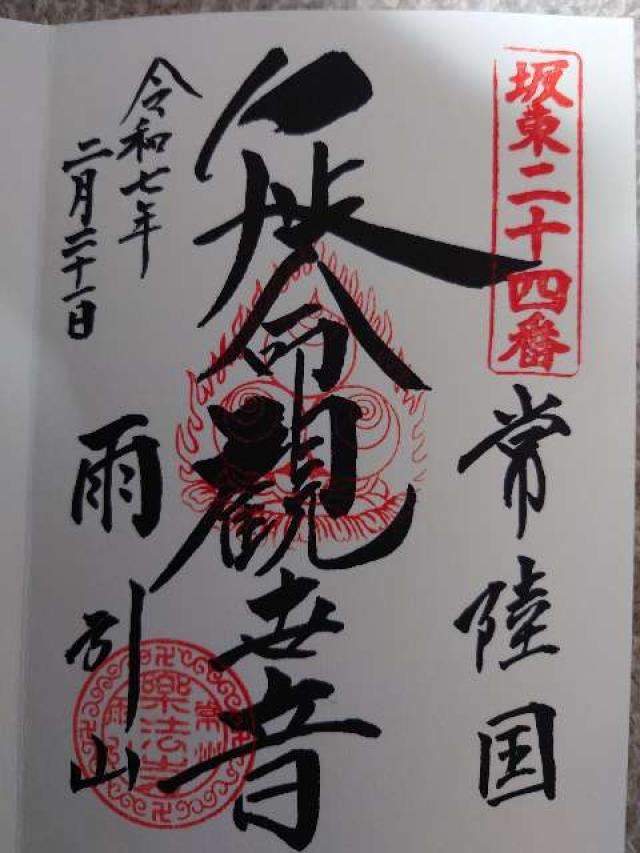 坂東二十四番
常陸国
延命観世音
令和七年
二月二十一日
雨引山
常州
樂法寺